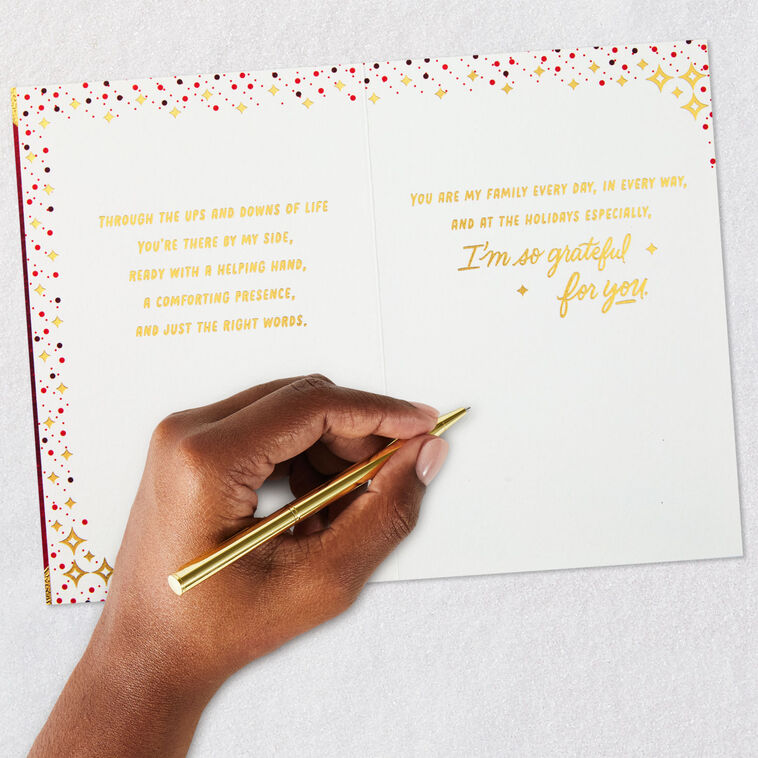 THROUGH THE UPS AND DOWNS OF LIFE
YOU'RE THERE BY MY SIDE,
READY WITH A HELPING HAND,
A COMFORTING PRESENCE,
AND JUST THE RIGHT WORDS.
YOU ARE MY FAMILY EVERY DAY, IN EVERY WAY,
AND AT THE HOLIDAYS ESPECIALLY,
I'm so grateful
for you.